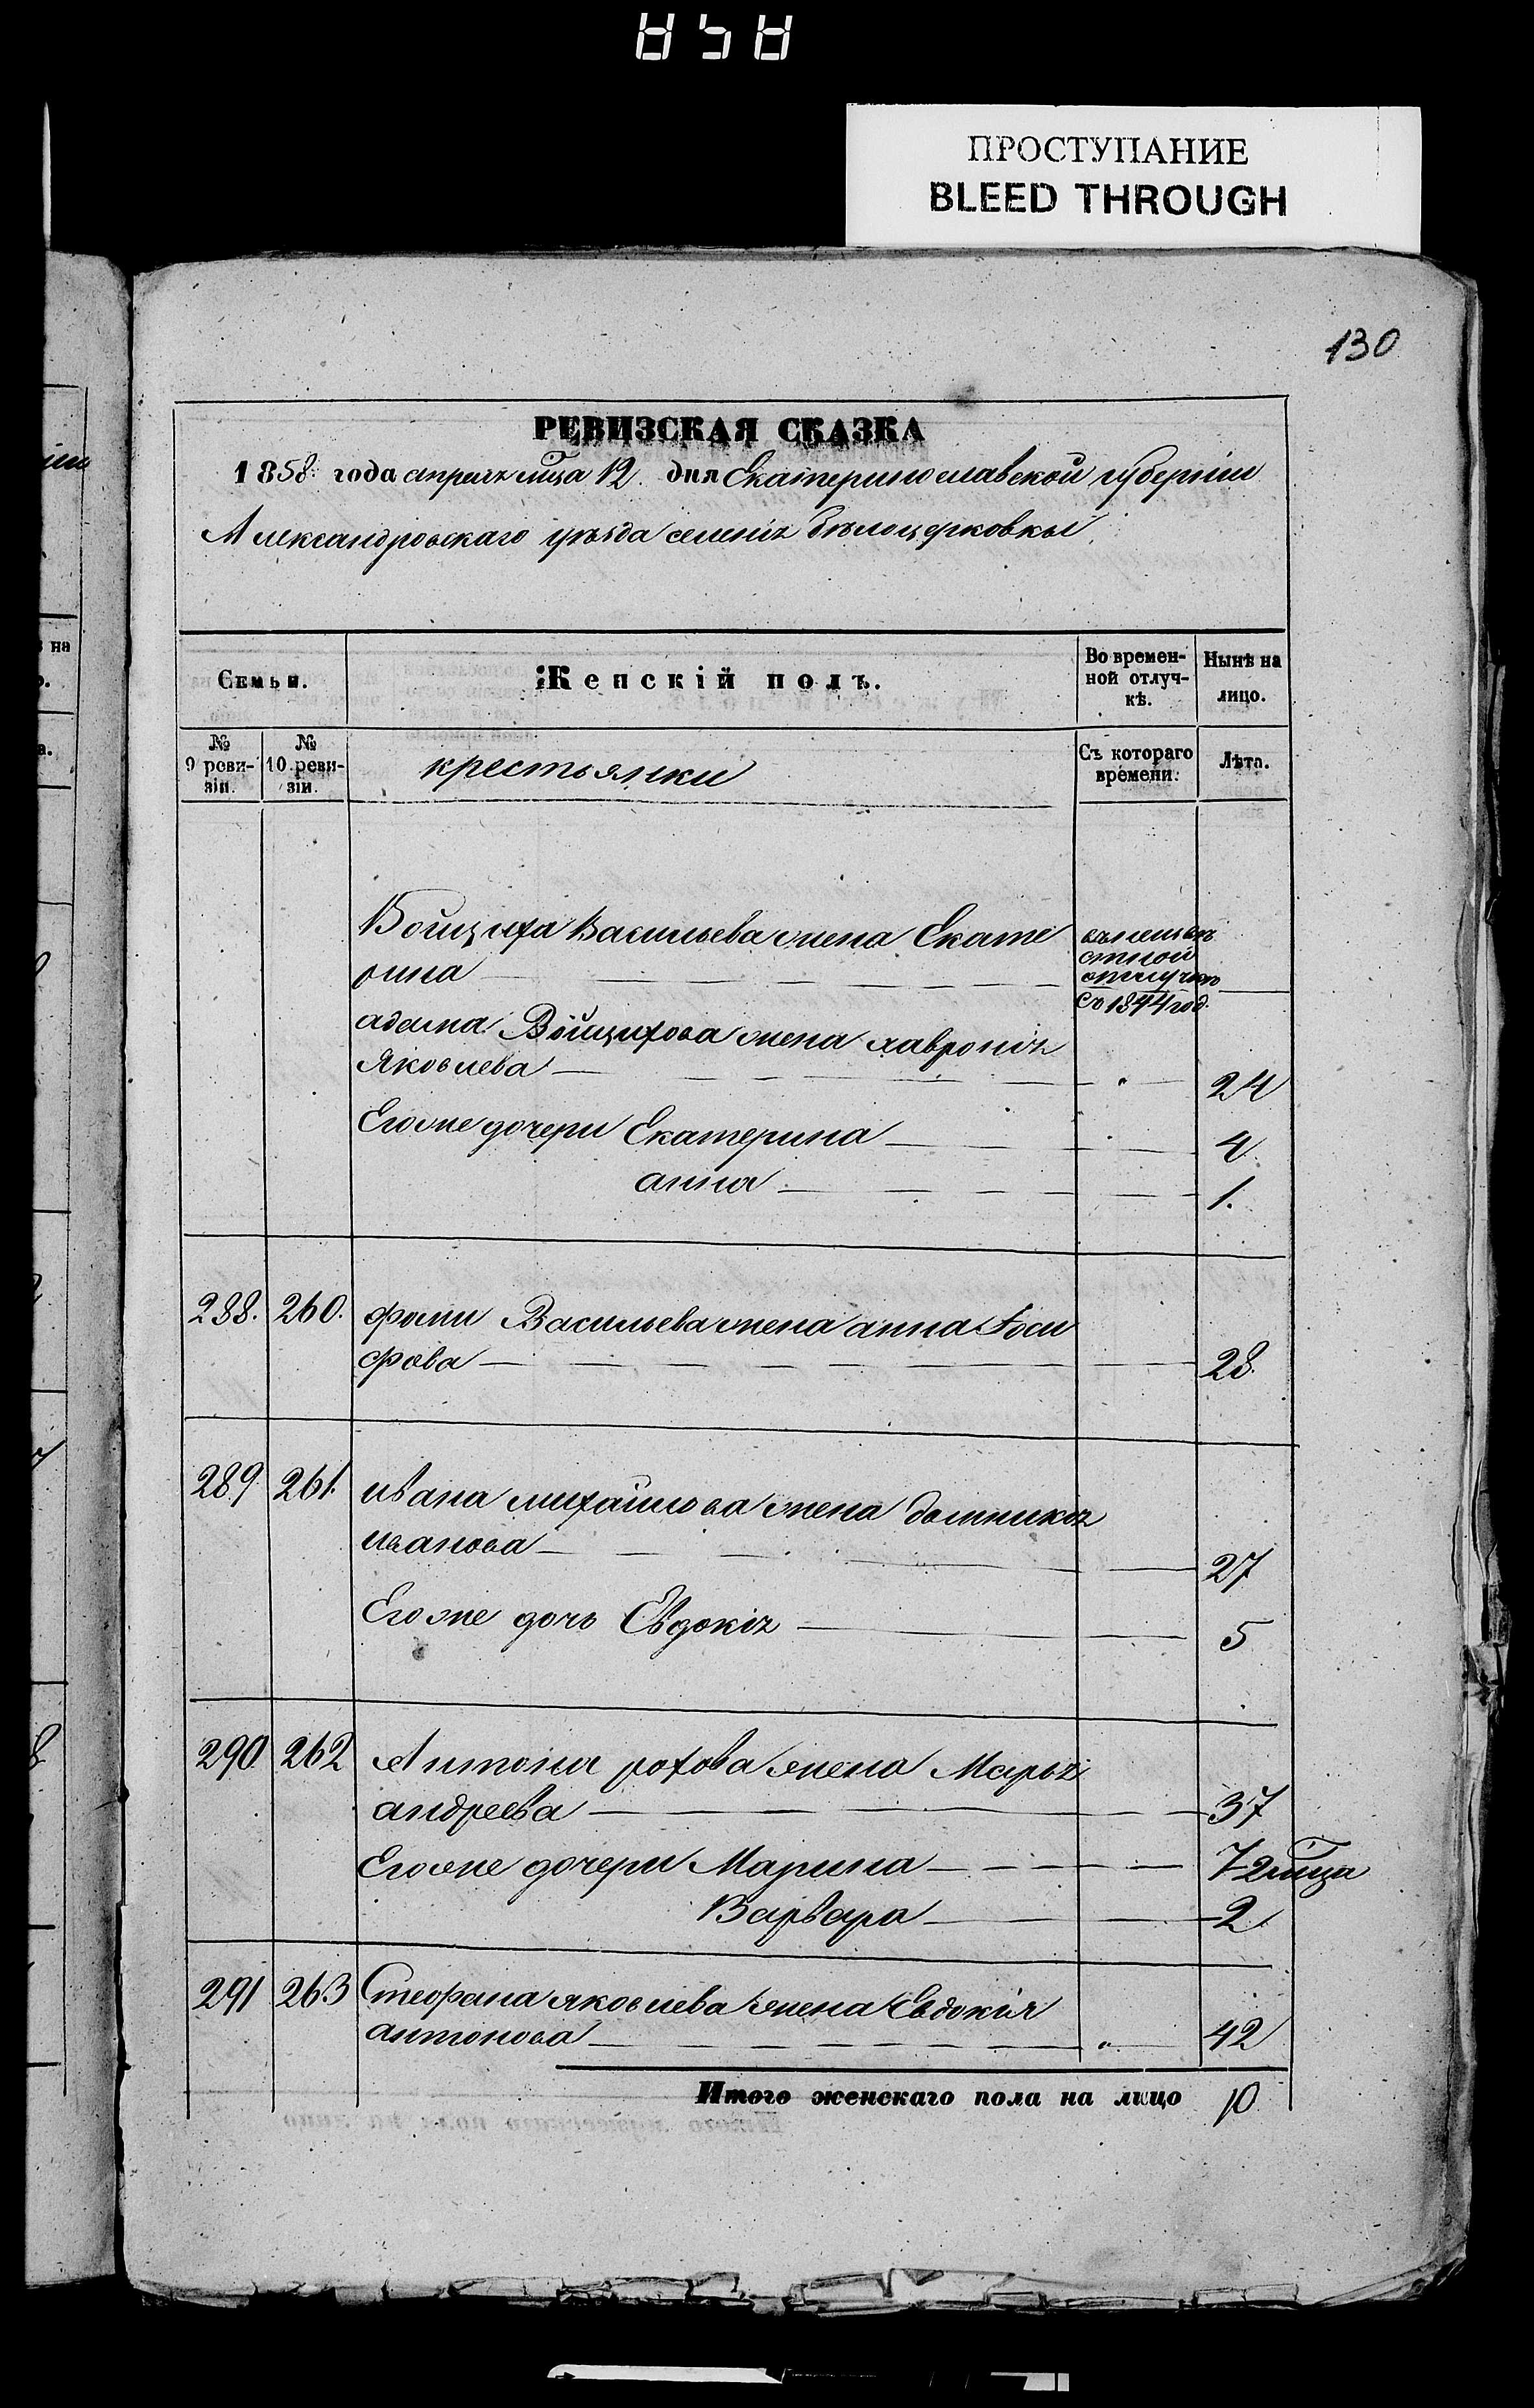 ПРОСТУПАНИЕ
BLEED THROUGH
130
РЕВИЗСКАЯ СКАЗКА
1858 года апреля мца 12 дня Екатеринославской губернии
Александровскаго уѣзда селенія Бѣлоцерковки
Семьи. Женскій полъ. Во времен-ной отлуч-кѣ. Нынѣ на лицо.
№ 9 реви-зіи. № 10 реви-зіи. крестьянки Съ котораго времени. Лѣта.
Войциха Васильева жена Екате
рина
отлучкѣ
Съ 1844 год.
адама Войцихова жена хавронія
Яковлева 24
Егоже дочери Екатерина 4
анна 1.
288. 260. фомы Васильева жена анна Іоси
фова 28.
289 261. ивана михайлова жена домникія
иванова 27
Егоже дочь Евдокія 5
290 262 Антона рохова жена Марья
андреева 37
Егоже дочери Марина 7 2 мца
Варвара 2
291 263 Стефана яковлева жена Евдокія
антонова 42
Итого женскаго пола на лицо 10